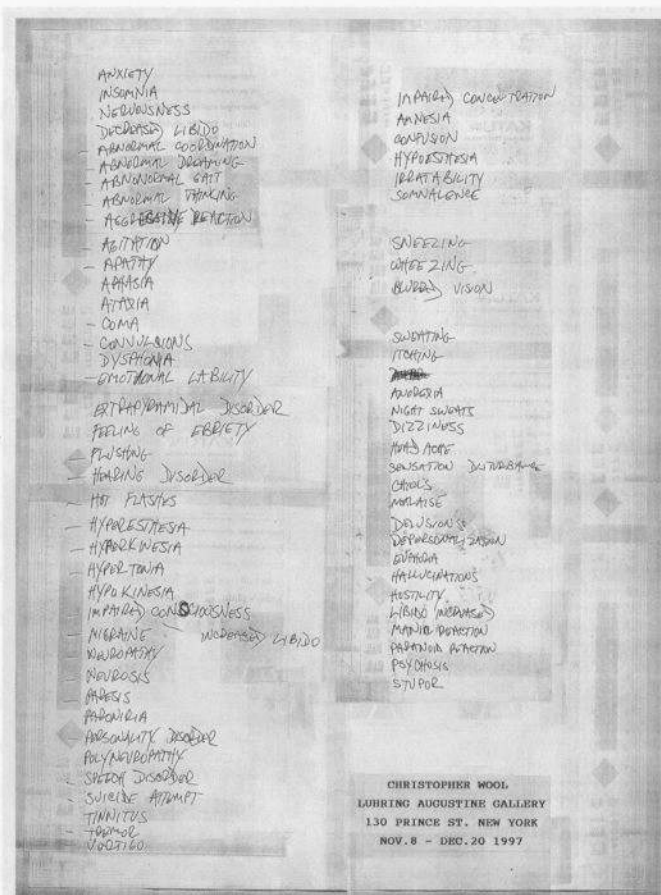 ANXIETY
INSOMNIA
NERVOUSNESS
DECREASED LIBIDO
– ABNORMAL COORDINATION
– ABNORMAL DREAMING
– ABNONORMAL GAIT
– ABNORMAL THINKING
– AGGRESSIVE REACTION
– AGITATION
– APATHY
APHASIA
ATAXIA
– COMA
– CONVULSIONS
DYSPHONIA
– EMOTIONAL LABILITY
EXTRAPYRAMIDAL DISORDER
FEELING OF EBRIETY
– FLUSHING
– HEARING DISORDER
– HOT FLASHES
– HYPERESTHESIA
– HYPERKINESIA
– HYPERTONIA
HYPOKINESIA
– IMPAIRED CONSCIOUSNESS
– MIGRAINE – INCREASED LIBIDO
– NEUROPATHY
– NEUROSIS
– PARESIS
PARONIRIA
– PERSONALITY DISORDER
POLYNEUROPATHY
– SPEECH DISORDER
– SUICIDE ATTEMPT
TINNITUS
– TREMOR
– VERTIGO
IMPAIRED CONCENTRATION
AMNESIA
CONFUSION
HYPOESTHESIA
IRRATABILITY
SOMNALENCE
SNEEZING
WHEEZING
BLURRED VISION
SWEATING
ITCHING
ANOREXIA
NIGHT SWEATS
DIZZINESS
HEAD ACHE
SENSATION DISTURBANCE
CHILLS
MALAISE
DELUSIONS
DEPERSONALIZATION
EUPHORIA
HALLUCINATIONS
HOSTILITY
LIBIDO INCREASED
MANIC REACTION
PARANOID REACTION
PSYCHOSIS
STUPOR
CHRISTOPHER WOOL
LUHRING AUGUSTINE GALLERY
130 PRINCE ST. NEW YORK
NOV.8 - DEC.20 1997